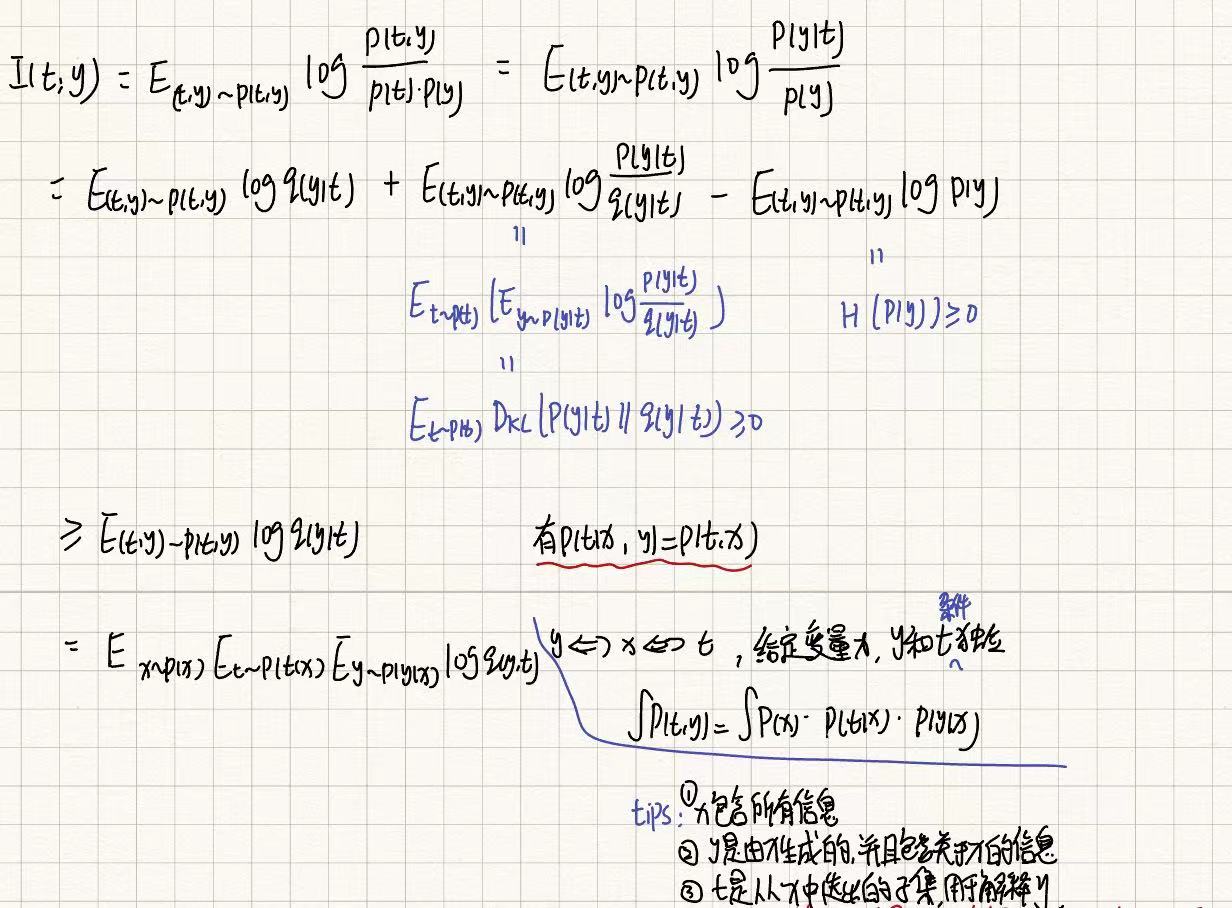 I(t;y) = E_{(t,y)~p(t,y)} log \frac{p(t,y)}{p(t)·p(y)} = E_{(t,y)~p(t,y)} log \frac{p(y|t)}{p(y)}
= E_{(t,y)~p(t,y)} log q(y|t) + E_{(t,y)~p(t,y)} log \frac{p(y|t)}{q(y|t)} - E_{(t,y)~p(t,y)} log p(y)
= =
E_{t~p(t)} (E_{y~p(y|t)} log \frac{p(y|t)}{q(y|t)}) H(p(y)) ≥ 0
=
E_{t~p(t)} D_{KL}(p(y|t) || q(y|t)) ≥ 0
≥ E_{(t,y)~p(t,y)} log q(y|t) 有p(t|x, y)=p(t,x)
条件
= E_{x~p(x)} E_{t~p(t|x)} E_{y~p(y|x)} log q(y,t) y⇔x⇔t, 给定变量x, y和t独立
∫p(t,y) = ∫p(x)·p(t|x)·p(y|x)
tips: ① x包含所有信息
② y是由x生成的, 并且包含关于x的信息
③ t是从x中选出的子集, 用于解释y